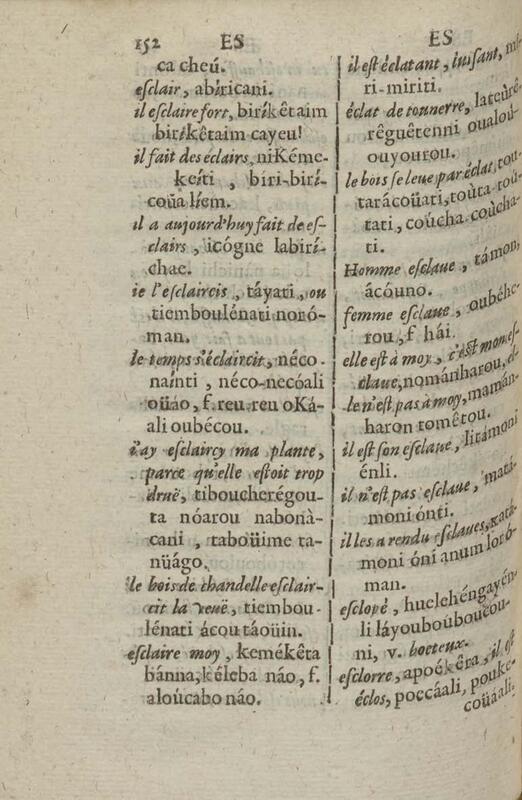 152 ES
ca cheú.
eſclair, abíricani.
il eſclaire fort, biríkêtaim
biríkêtaim cayeu!
il fait des éclairs, niKéme-
keíti , biri-birí-
coüa líem.
il a aujourd'huy fait de eſ-
clairs , icógne labirí-
chae.
ie l'eſclaircis , táyati , ou
tiemboulénati noró-
man.
le temps s'éclaircit, néco-
naínti , néco-necóali
oüáo, ſ. reu reu oKá-
ali oubécou.
i'ay eſclaircy ma plante,
parce qu'elle eſtoit trop
druë, tiboucherégou-
ta nóarou nabonà-
cani , taboüime ta-
nüágo.
le bois de chandelle eſclair-
cit la veuë, tiembou-
lénati ácou táoüin.
eſclaire moy , kemékêta
bánna, kéleba náo, ſ.
aloúcabo náo.
ES
il eſt éclatant, luiſant, mi-
ri-miriti.
éclat de tounerre, lateúrê-
rêguêtenni oualou-
ouyourou.
le bois ſe leue par éclat, tou-
tarácoüati, toùta toú-
tati, coúcha-coùcha-
ti.
Homme eſclaue , támon,
ácóuno.
femme eſclaue , oubéhe-
rou, ſ hái.
elle eſt à moy , c'est mon eſ-
claue, nománharou,
le n'eſt pas à moy, mamán-
haron tomêtou.
il eſt ſon eſclaue , litámoni
énli.
il n'eſt pas eſclaue , matá-
moni ónti.
il les a rendu eſclaues, katá-
moni óní anum loró-
man.
eſclopé , huelehéngayén-
li láyouboúboucou-
ni, v. boeteux.
eſclorre, apoékêra , il eſt
éclos, poccáali, pouke-
coüáali.